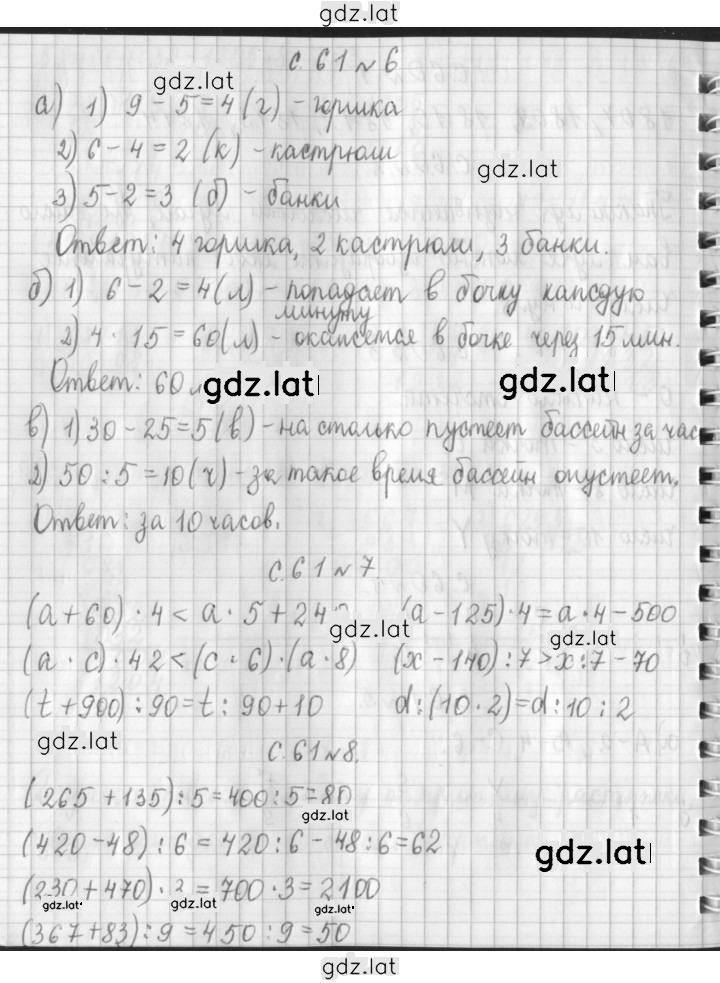 gdz.lat
с. 61 № 6
gdz.lat
а) 1) 9 - 5 = 4 (г) - горшка
2) 6 - 4 = 2 (к) - кастрюли
gdz.lat
3) 5 - 2 = 3 (б) - банки
Ответ: 4 горшка, 2 кастрюли, 3 банки.
б) 1) 6 - 2 = 4 (л) - попадает в бочку каждую
минуту
2) 4 · 15 = 60 (л) - окажется в бочке через 15 мин.
Ответ: 60 л
gdz.lat
gdz.lat
в) 1) 30 - 25 = 5 (в) - на столько пустеет бассейн за час
2) 50 : 5 = 10 (ч) - за такое время бассеин опустеет.
Ответ: за 10 часов.
с. 61 № 7
(a + 60) · 4 < a · 5 + 240 (a - 125) · 4 = a · 4 - 500
gdz.lat
gdz.lat
(a · c) · 42 < (c · 6) · (a · 8) (x - 140) : 7 > x : 7 - 70
(t + 900) : 90 = t : 90 + 10 d : (10 · 2) = d : 10 : 2
gdz.lat
с. 61 № 8.
(265 + 135) : 5 = 400 : 5 = 80
gdz.lat
(420 - 48) : 6 = 420 : 6 - 48 : 6 = 62
gdz.lat
(230 + 470) · 3 = 700 · 3 = 2100
gdz.lat
gdz.lat
gdz.lat
(367 + 83) : 9 = 450 : 9 = 50
gdz.lat